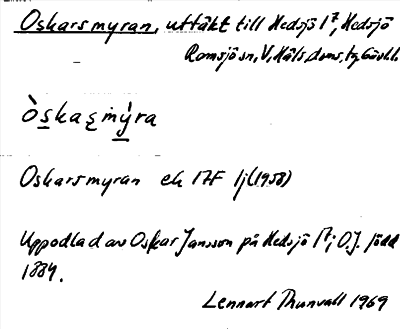 Oskarsmyran, uttäkt till Hedsjö 1⁷, Hedsjö
Ramsjö sn, V. Häls. doms., Gävlebl.
òskaʂmýra
Oskarsmyran ek 17F 1j (1958)
Uppodlad av Oskar Jansson på Hedsjö 1⁷; O.J. född
1884.
Lennart Thunvall 1969